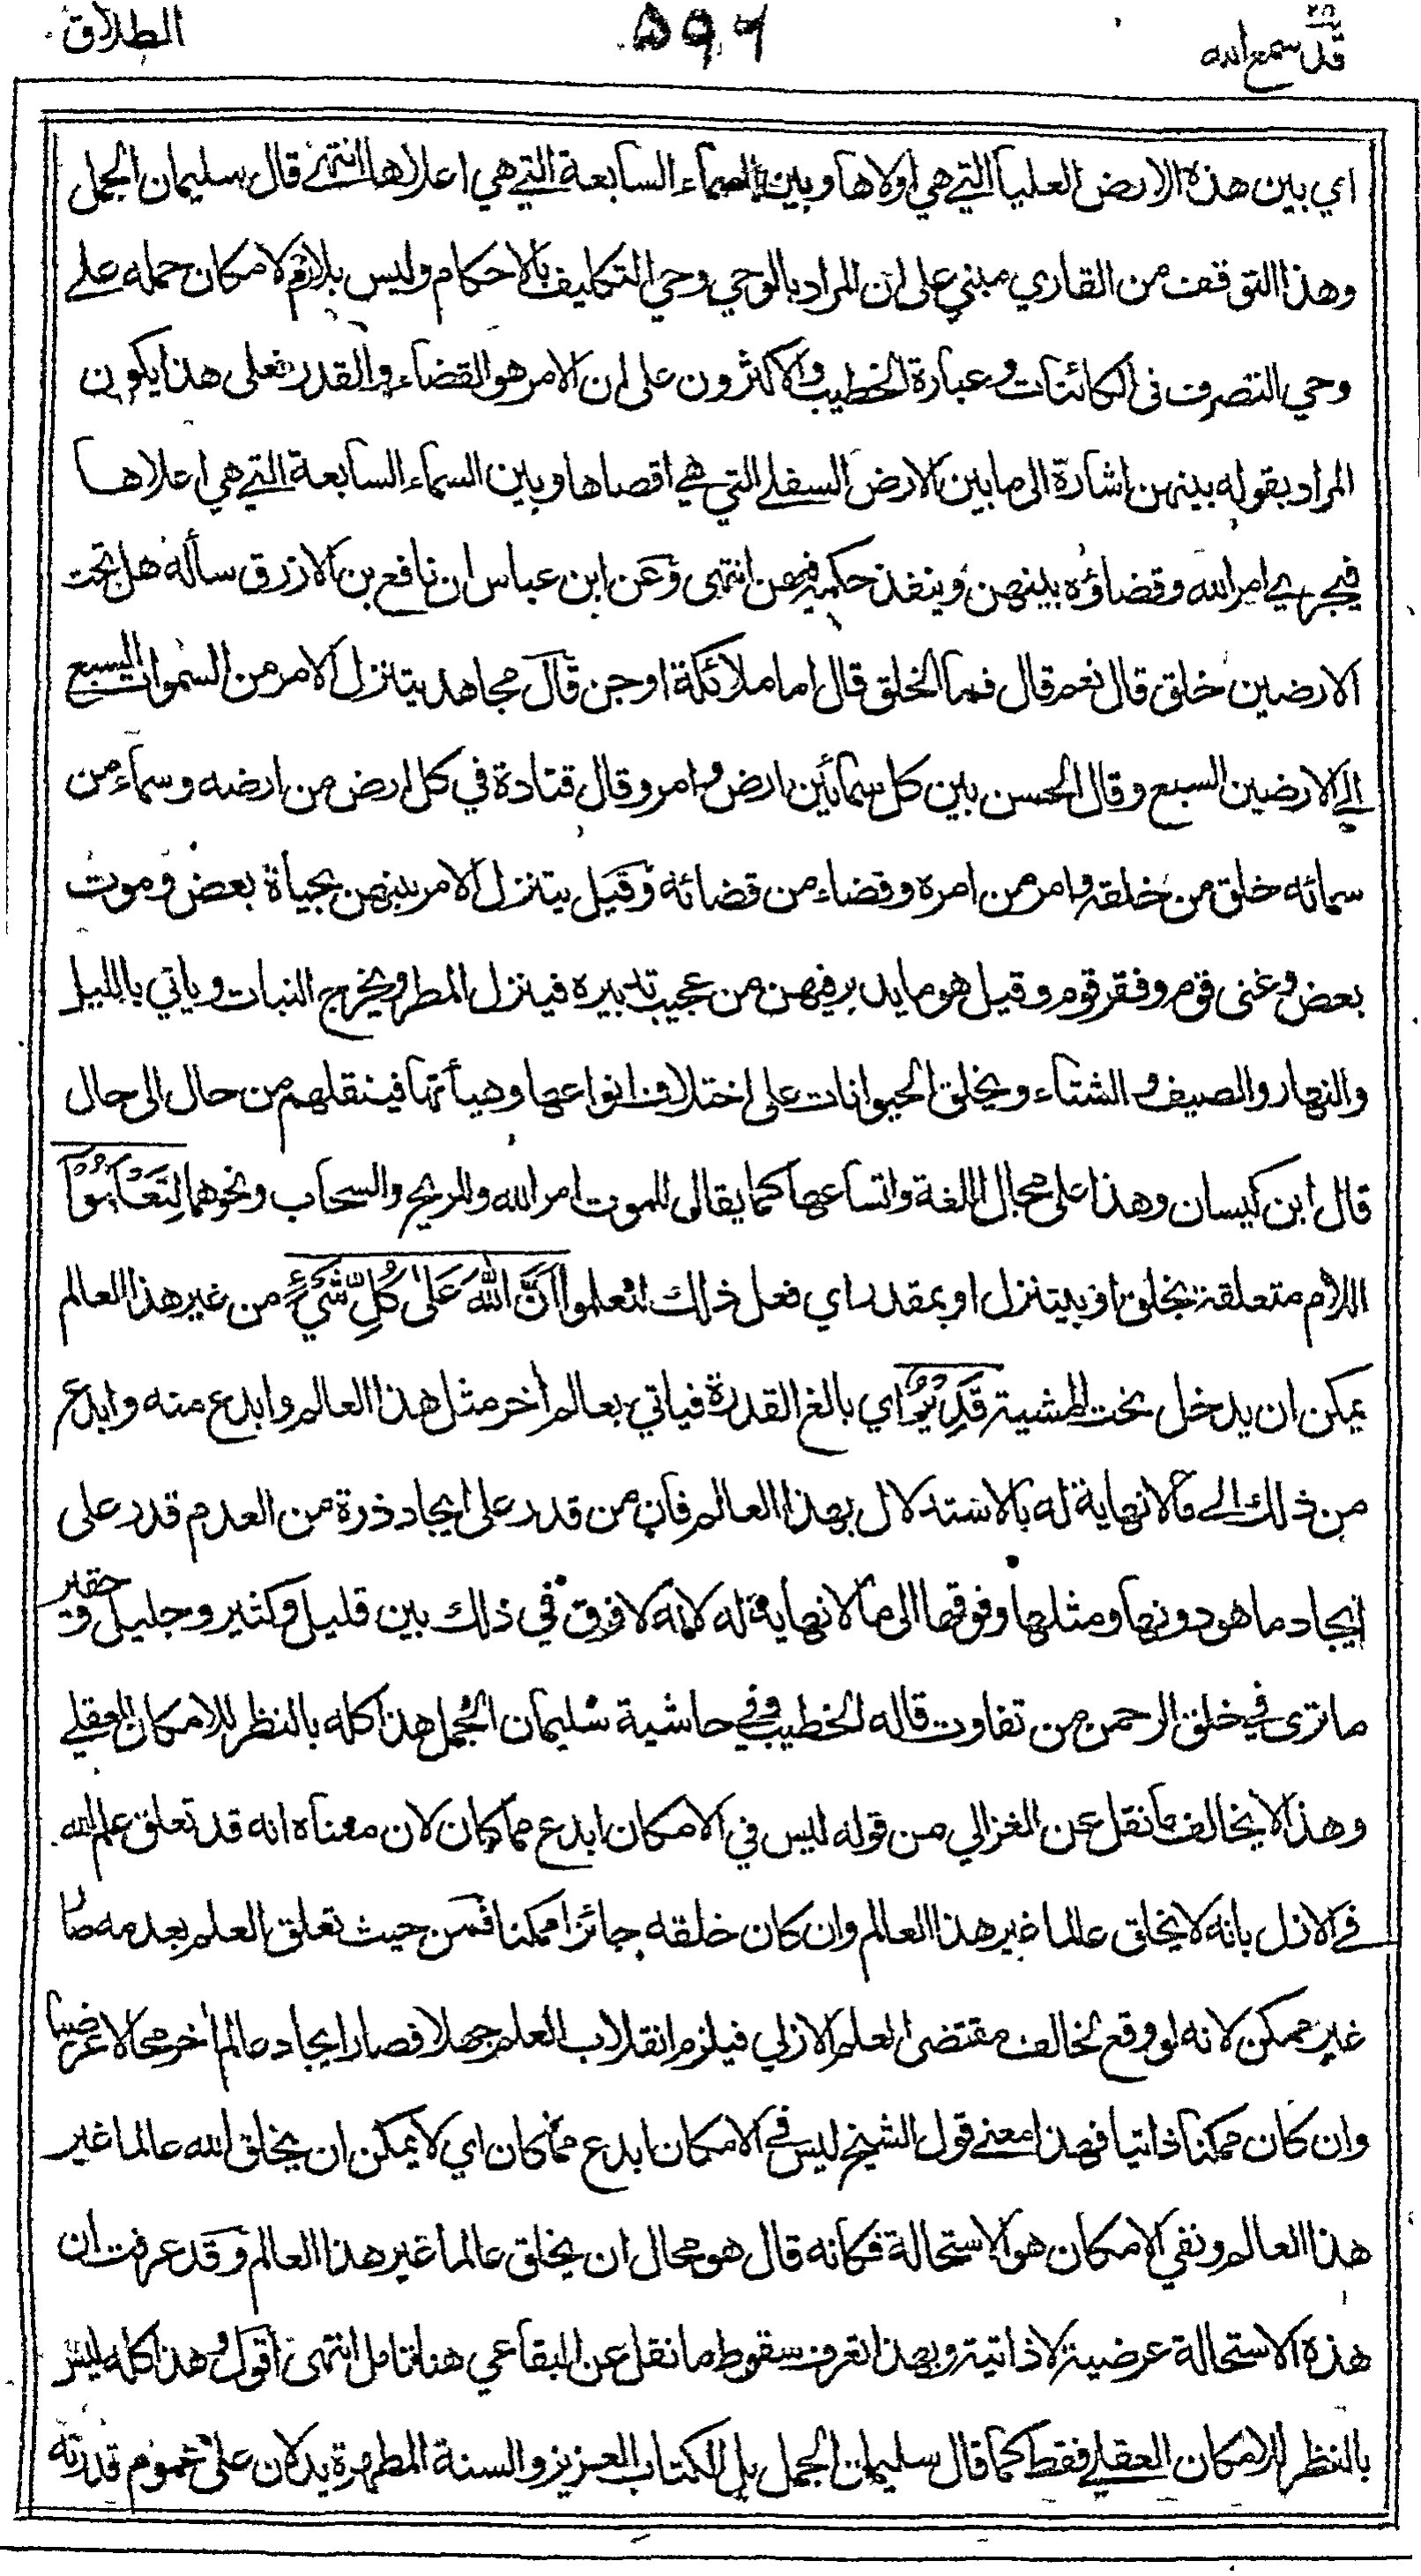 قد سمع الله ٢٨
٥٩٦
الطلاق
اي بين هذه الارض العليا التي هي اولاها وبين السماء السابعة التي هي اعلاها انتهى قال سليمان الجمل
وهذا التوقف من القاري مبني على ان المراد بالوحي وحي التكليف بالاحكام وليس بلازم لامكان حمله على
وحي التصرف في الكائنات وعبارة الخطيب والاكثرون على ان الامر هو القضاء والقدر فعلى هذا يكون
المراد بقوله بينهن اشارة الى ما بين الارض السفلى التي هي اقصاها وبين السماء السابعة التي هي اعلاها
فيجري امر الله وقضاؤه بينهن وينفذ حكمه فيهن انتهى وعن ابن عباس ان نافع بن الازرق سأله هل تحت
الارضين خلق قال نعم قال فما الخلق قال اما ملائكة او جن قال مجاهد يتنزل الامر من السموات السبع
الى الارضين السبع وقال الحسن بين كل سمائين ارض وامر وقال قتادة في كل ارض من ارضه وسماء من
سمائه خلق من خلقه وامر من امره وقضاء من قضائه وقيل يتنزل الامر بينهن بحياة بعض وموت
بعض وغنى قوم وفقر قوم وقيل هو ما يدبر فيهن من عجيب تدبيره فينزل المطر ويخرج النبات وياتي بالليل
والنهار والصيف والشتاء ويخلق الحيوانات على اختلاف انواعها وهيأتها فينقلهم من حال الى حال
قال ابن كيسان وهذا على مجال اللغة واتساعها كما يقال للموت امر الله وللريح والسحاب ونحوهما لِتَعْلَمُوْا
اللام متعلقة بخلق او بيتنزل او بمقدر اي فعل ذلك لتعلموا اَنَّ اللّٰهَ عَلٰى كُلِّ شَيْءٍ من غير هذا العالم
يمكن ان يدخل تحت المشية قَدِيْرٌ اي بالغ القدرة فياتي بعالم أخر مثل هذا العالم وابدع منه وابدع
من ذلك الى مالا نهاية له بالاستدلال بهذا العالم فان من قدر على ايجاد ذرة من العدم قدر على
ايجاد ما هو دونها ومثلها وفوقها الى ما لا نهاية له لانه لا فرق في ذلك بين قليل وكثير وجليل وحقير
ما ترى في خلق الرحمن من تفاوت قاله الخطيب وفي حاشية سليمان الجمل هذا كله بالنظر للامكان العقلي
وهذا لا يخالف ما نقل عن الغزالي من قوله ليس في الامكان ابدع مما كان لان معناه انه قد تعلق علم الله
في الازل بانه لا يخلق عالما غير هذا العالم وان كان خلقه جائزا ممكنا فمن حيث تعلق العلم بعدمه صار
غير ممكن لانه لو وقع لخالف مقتضى العلم الازلي فيلزم انقلاب العلم جهلا فصار ايجاد عالم أخر محالا عرضيا
وان كان ممكنا ذاتيا فهذا معنى قول الشيخ ليس في الامكان ابدع مما كان اي لا يمكن ان يخلق الله عالما غير
هذا العالم ونفي الامكان هو الاستحالة فكانه قال هو محال ان يخلق عالما غير هذا العالم وقد عرفت ان
هذه الاستحالة عرضية لا ذاتية وبهذا تعرف سقوط ما نقل عن البقاعي هنا تامل انتهى اقول وهذا كله ليس
بالنظر للامكان العقلي فقط كما قال سليمان الجمل بل الكتاب العزيز والسنة المطهرة يدلان على عموم قدرته